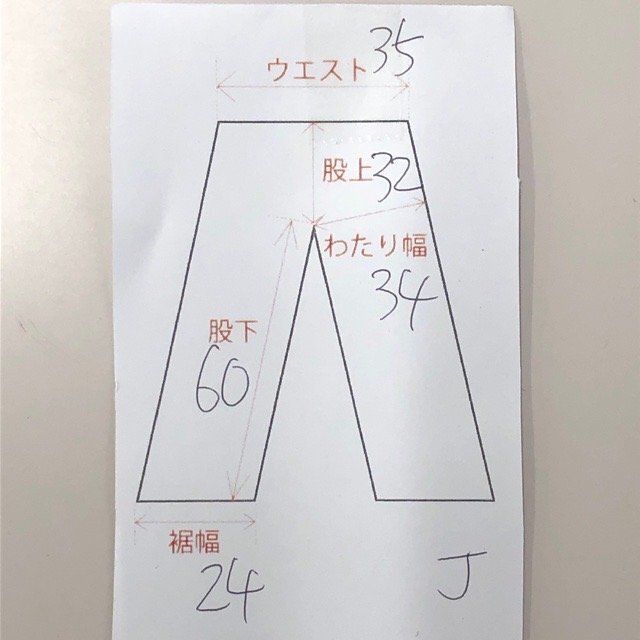 ウエスト 35
股上 32
わたり幅
34
股下
60
裾幅
24
J